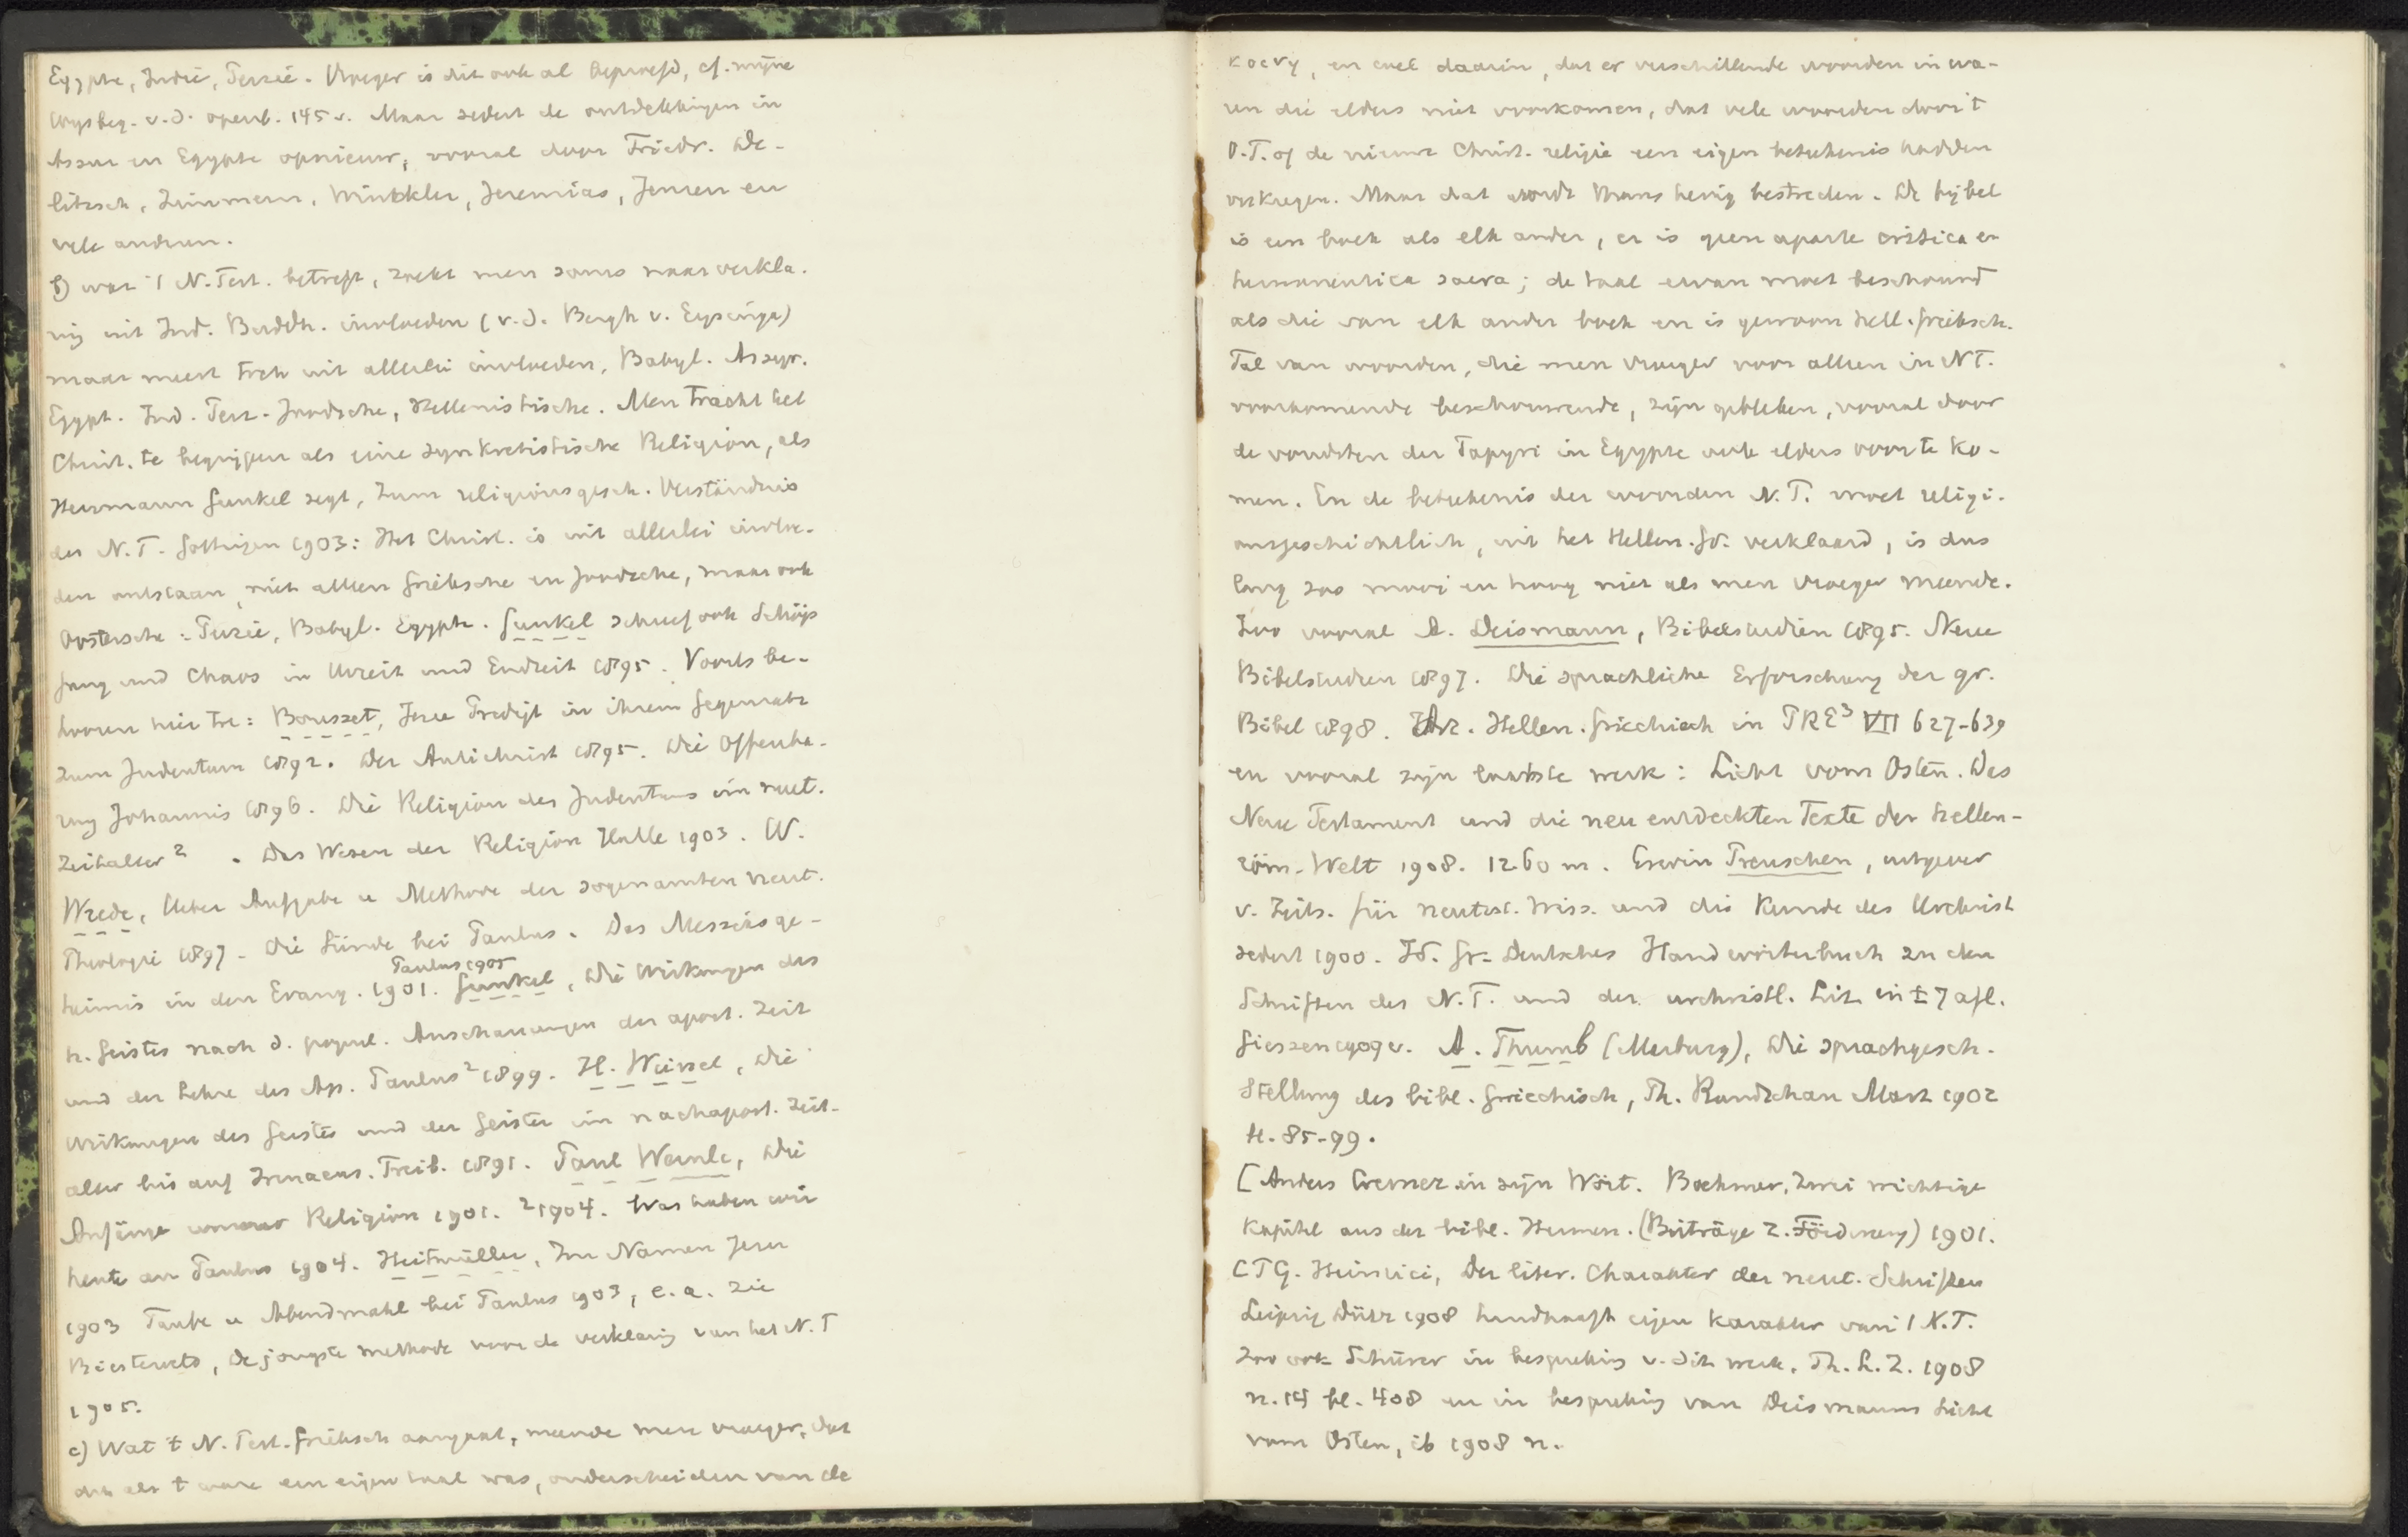 Egypte, Indië, Perzië. Vroeger is dit ook al beproefd, cf. mijne
Wijsbeg. v.d. openb. 145 v. Maar sedert de ontdekkingen in
Assur en Egypte opnieuw, vooral door Friedr. De-
litzsch, Zimmern, Winckler, Jeremias, Jensen en
vele anderen.
b) wat 't N. Test. betreft, zoekt men soms naar verkla-
ring uit Ind. Buddh. invloeden (v.d. Bergh v. Eysinga)
maar meest toch uit allerlei invloeden, Babyl. Assyr.
Egypt. Ind. Perz. Joodsche, Hellenistische. Men tracht het
Christ. te begrijpen als eine synkretistische Religion, als
Hermann Gunkel zegt, Zum religionsgesch. Verständnis
des N.T. Gottingen 1903: Het Christ. is uit allerlei invloe-
den ontstaan, niet alleen Grieksche en Joodsche, maar ook
Oostersche: Perzië, Babyl. Egypte. Gunkel schreef ook Schöp
fung und Chaos in Urzeit und Endzeit 1895. Voorts be-
hooren hier toe: Bousset, Jesu Predigt in ihrem Gegensatz
zum Judentum 1892. Der Antichrist 1895. Die Offenba-
rung Johannis 1896. Die Religion des Judentums im neut.
Zeitalter². Das Wesen der Religion Halle 1903. W.
Wrede, Ueber Aufgabe u Methode der sogenannten neut.
Theologie 1897. Die Sünde bei Paulus. Das Messiasge-
Paulus 1905
heimnis in den Evang. 1901. Gunkel, Die Wirkungen des
h. Geistes nach d. popul. Anschauungen der apost. Zeit
und der Lehre des Ap. Paulus² 1899. H. Weinel, Die
Wirkungen des Geistes und der Geister im nachapost. Zeit-
alter bis auf Irenaeus. Freib. 1891. Paul Wernle, Die
Anfänge unserer Religion 1901. ²1904. Was haben wir
heute an Paulus 1904. Heitmüller, Im Namen Jesu
1903 Taufe u Abendmahl bei Paulus 1903, e.a. Zie
Biesterveld, De jongste methode voor de verklaring van het N.T
1905.
c) Wat 't N. Test. Grieksch aangaat, meende men vroeger, dat
dit als 't ware een eigen taal was, onderscheiden van de
κοινη, en wel daarin, dat er verschillende woorden in wa-
ren die elders niet voorkomen, dat vele woorden door 't
O.T. of de nieuwe Christ. religie een eigen beteekenis hadden
verkregen. Maar dat wordt thans hevig bestreden. De bijbel
is een boek als elk ander, er is geen aparte critica en
hermeneutica sacra; de taal ervan moet beschouwd
als die van elk ander boek en is gewoon Hell. Grieksch.
Tal van woorden, die men vroeger voor alleen in NT.
voorkomende beschouwende, zijn gebleken, vooral door
de vondsten der Papyri in Egypte ook elders voor te ko-
men. En de beteekenis der woorden N.T. moet religi-
onsgeschichtlich, uit het Hellen. Gr. verklaard, is dus
lang zoo mooi en hoog niet als men vroeger meende.
Zoo vooral A. Deismann, Bibelstudien 1895. Neue
Bibelstudien 1897. Die sprachliche Erforschung der gr.
Bibel 1898. Art. Hellen. Griechisch in PRE³ VII 627-639
en vooral zijn laatste werk: Licht vom Osten. Das
Neue Testament und die neu entdeckten Texte der hellen-
röm. Welt 1908. 12.60 m. Erwin Preuschen, uitgever
v. Zeits. für neutest. Wiss. und die Kunde des Urchrist
sedert 1900. Id. Gr. Deutsches Handwörterbuch zu den
Schriften des N.T. und der urchristl. Lit. in ± 7 afl.
Gieszen 1909 v. A. Thumb (Marburg), Die sprachgesch.
Stellung des bibl. Griechisch, Th. Rundschau Marz 1902
H. 85-99.
[Anders Cremer in zijn Wört. Boehmer, Zwei wichtige
Kapitel aus der bibl. Hermen. (Beiträge z. Förderung) 1901.
CTG. Heinrici, Der liter. Charakter der neut. Schriften
Leipzig Dürr 1908 handhaaft eigen karakter van 't N.T.
Zoo ook Schürer in bespreking v. dit werk. Th. L. Z. 1908
n. 14 bl. 408 en in bespreking van Deismanns Licht
vom Osten, ib 1908 n.